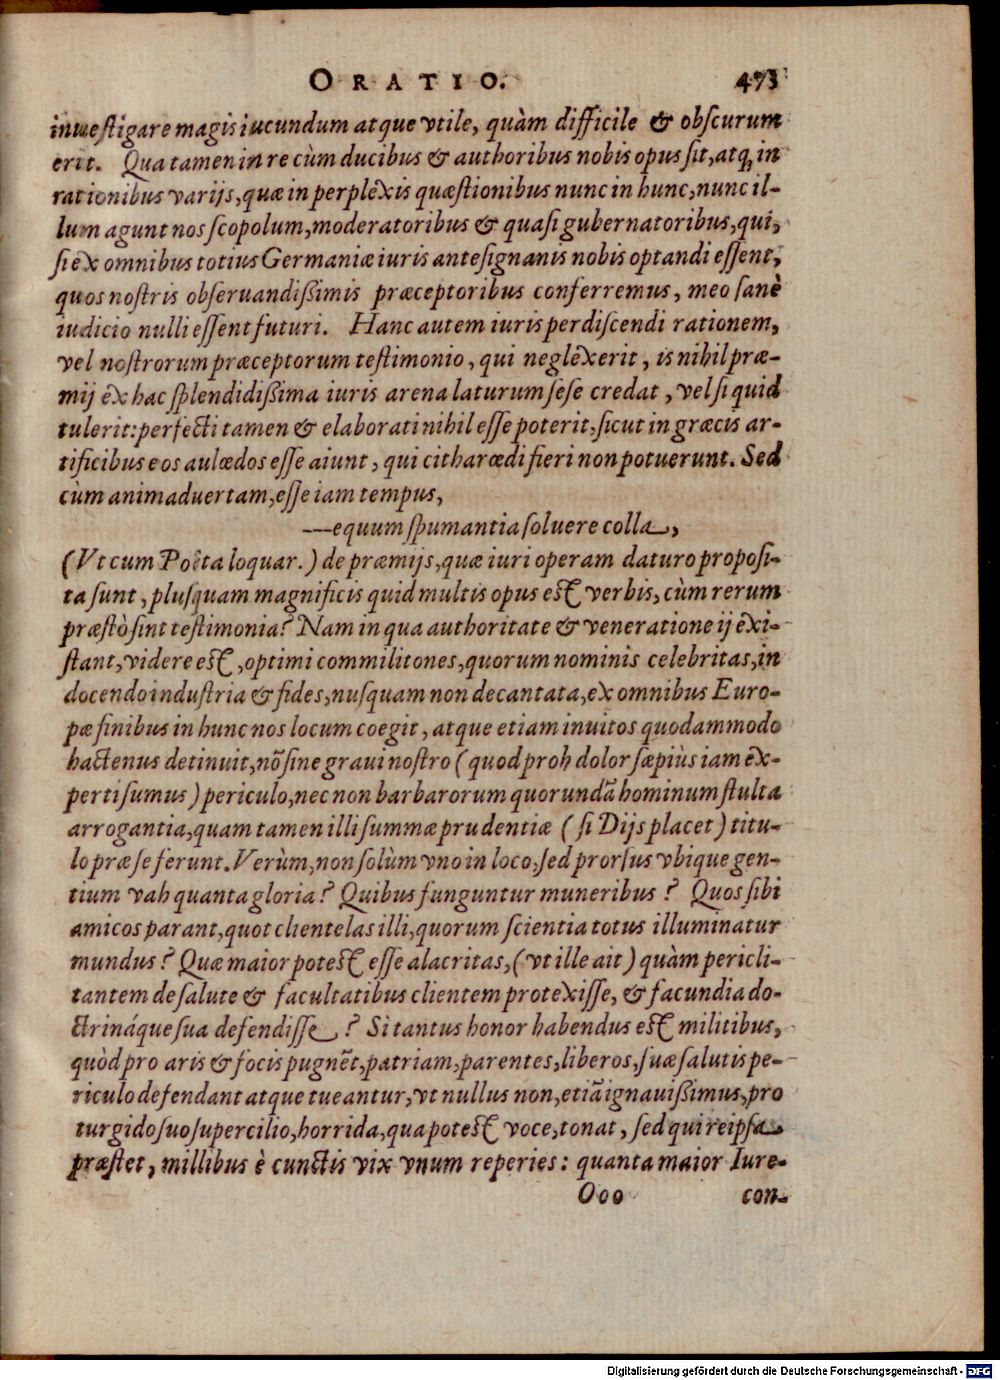 ORATIO. 473
inuestigare magis iucundum atque vtile, quàm difficile & obscurum
erit. Qua tamen in re cùm ducibus & authoribus nobis opus sit, atq; in
rationibus varijs, quæ in perplexis quæstionibus nunc in hunc, nunc il-
lum agunt nos scopolum, moderatoribus & quasi gubernatoribus, qui,
si ex omnibus totius Germaniæ iuris antesignanis nobis optandi essent,
quos nostris obseruandißimis præceptoribus conferremus, meo sanè
iudicio nulli essent futuri. Hanc autem iuris perdiscendi rationem,
vel nostrorum præceptorum testimonio, qui neglexerit, is nihil præ-
mij ex hac splendidißima iuris arena laturum sese credat, vel si quid
tulerit: perfecti tamen & elaborati nihil esse poterit, sicut in græcis ar-
tificibus eos aulœdos esse aiunt, qui citharœdi fieri non potuerunt. Sed
cùm animaduertam, esse iam tempus,
---equum spumantia soluere colla,
(Vt cum Poëta loquar.) de præmijs, quæ iuri operam daturo proposi-
ta sunt, plusquam magnificis quid multis opus est verbis, cùm rerum
præstò sint testimonia? Nam in qua authoritate & veneratione ij exi-
stant, videre est, optimi commilitones, quorum nominis celebritas, in
docendo industria & fides, nusquam non decantata, ex omnibus Euro-
pæ finibus in hunc nos locum coegit, atque etiam inuitos quodammodo
hactenus detinuit, nõ sine graui nostro (quod proh dolor sæpiùs iam ex-
perti sumus) periculo, nec non barbarorum quorundã hominum stulta
arrogantia, quam tamen illi summæ prudentiæ (si Dijs placet) titu-
lo præ se ferunt. Verùm, non solùm vno in loco, sed prorsus vbique gen-
tium vah quanta gloria? Quibus funguntur muneribus? Quos sibi
amicos parant, quot clientelas illi, quorum scientia totus illuminatur
mundus? Quæ maior potest esse alacritas, (vt ille ait) quàm pericli-
tantem de salute & facultatibus clientem protexisse, & facundia do-
ctrináque sua defendisse? Si tantus honor habendus est militibus,
quòd pro aris & focis pugnẽt, patriam, parentes, liberos, suæ salutis pe-
riculo defendant atque tueantur, vt nullus non, etiã ignauißimus, pro
turgido suo supercilio, horrida, qua potest voce, tonat, sed qui reipsa
præstet, millibus è cunctis vix vnum reperies: quanta maior Iure-
Ooo con-
Digitalisierung gefördert durch die Deutsche Forschungsgemeinschaft - DFG